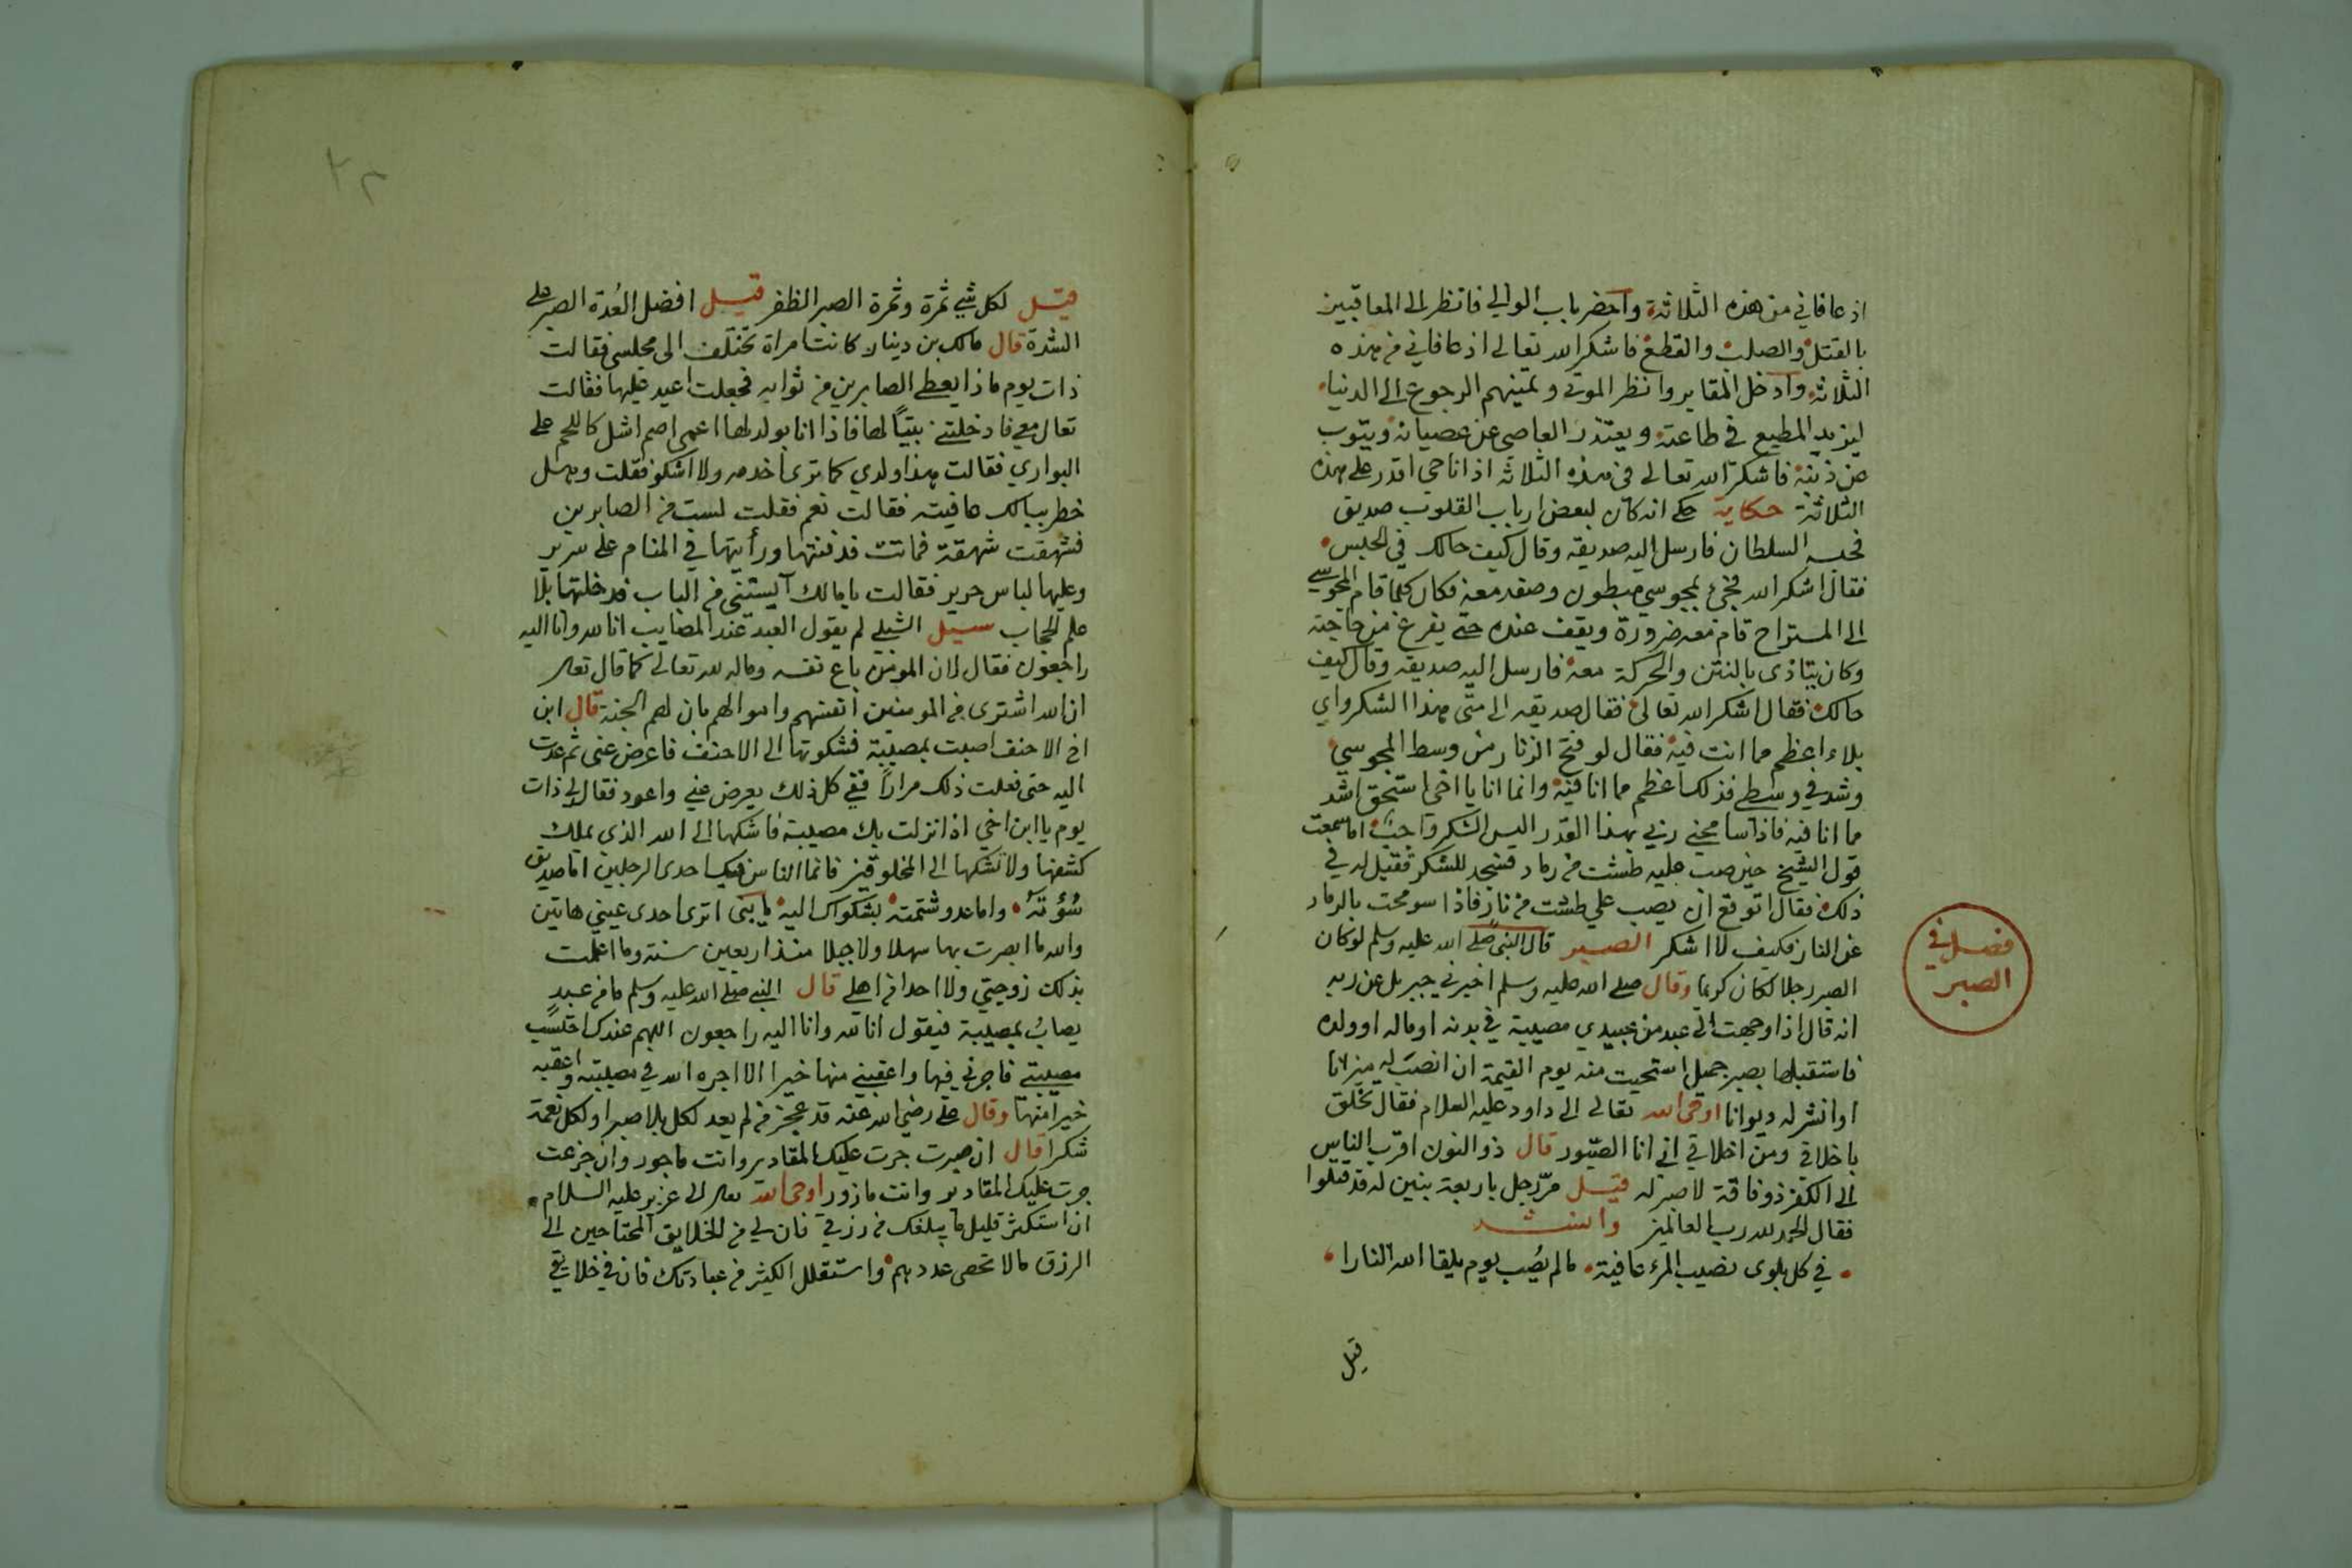 اذ عافاني من هذه الثلاثة واحضر باب الوالي فانظر الى المعاقبين
بالقتل والصلب والقطع فاشكر الله تعالى اذ عافاني من هذه
الثلاثة وادخل المقابر وانظر الموتى وتمنيهم الرجوع الى الدنيا
ليزيد المطيع في طاعته ويعتذر العاصي عن عصيانه ويتوب
من ذنبه فاشكر الله تعالى في هذه الثلاثة اذ انا حي اقدر على هذه
الثلاثة حكاية حكي انه كان لبعض ارباب القلوب صديق
فحبسه السلطان فارسل اليه صديقه وقال كيف حالك في الحبس
فقال اشكر الله فجئ بمجوسي مبطون وصفد معه فكان كلما قام المجوسي
الى المستراح قام معه ضرورة ويقف عنده حتى يفرغ من حاجته
وكان يتاذى بالنتن والحركة معه فارسل اليه صديقه وقال كيف
حالك فقال اشكر الله تعالى فقال صديقه الى متى هذا الشكر واي
بلاء اعظم مما انت فيه فقال لو فتح الزنار من وسط المجوسي
وشد في وسطي فذلك اعظم مما انا فيه وانما انا يا اخي استحق اشد
مما انا فيه فاذا سامحني ربي بهذا القدر اليس الشكر واجب اما سمعت
قول الشيخ حين صب عليه طشت من رماد فسجد للشكر فقيل له في
ذلك فقال اتوقع ان يصب علي طشت من نار فاذا سومحت بالرماد
عن النار فكيف لا اشكر الصبر قال النبي صلى الله عليه وسلم لو كان
فصل في
الصبر
الصبر رجلا لكان كريما وقال صلى الله عليه وسلم اخبرني جبريل عن ربه
انه قال اذا وجهت الى عبد من عبيدي مصيبة في بدنه او ماله او ولده
فاستقبلها بصبر جميل استحييت منه يوم القيمة ان انصب له ميزانا
او انشر له ديوانا اوحى الله تعالى الى داود عليه السلام فقال تخلق
باخلاقي ومن اخلاقي اني انا الصبور قال ذو النون اقرب الناس
الى الكفر ذو فاقة لا صبر له قيل مر رجل باربعة بنين له قد قتلوا
فقال الحمد لله رب العالمين وانشد
في كل بلوى نصيب المرء عافية ما لم يصب يوم يلقا الله النارا
قيل
قيل لكل شئ ثمرة وثمرة الصبر الظفر قيل افضل العدة الصبر على
الشدة قال مالك بن دينار كانت امراة تختلف الى مجلسي فقالت
ذات يوم ماذا يعطى الصابرين من ثوابه فجعلت اعيد عليها فقالت
تعال معي فادخلتني بيتا لها فاذا انا بولد لها اعمى اصم اشل كاللحم على
البواري فقالت هذا ولدي كما ترى اخدمه ولا اشكو فقلت وهل
خطر ببالك عافيته فقالت نعم فقلت لست من الصابرين
فشهقت شهقة فماتت فدفنتها ورأيتها في المنام على سرير
وعليها لباس حرير فقالت يا مالك آيستني من الباب فدخلتها بلا
علم الحجاب سئيل الشبلي لم يقول العبد عند المصايب انا لله وانا اليه
راجعون فقال لان المومن باع نفسه وماله لله تعالى كما قال تعالى
ان الله اشترى من المومنين انفسهم واموالهم بان لهم الجنة قال ابن
اخ الاحنف اصبت بمصيبة فشكوتها الى الاحنف فاعرض عني ثم عدت
اليه حتى فعلت ذلك مرارا ففي كل ذلك يعرض عني واعود فقال لي ذات
يوم يا ابن اخي اذا نزلت بك مصيبة فاشكها الى الله الذي يملك
كشفها ولا تشكها الى المخلوقين فانما الناس فيك احدى الرجلين اما صديق
سؤته واما عدو شتمته بشكواك اليه يا بني اترى احدى عيني هاتين
والله ما ابصرت بها سهلا ولا جبلا منذ اربعين سنة وما اعلمت
بذلك زوجتي ولا احدا من اهلي قال النبي صلى الله عليه وسلم ما من عبد
يصاب بمصيبة فيقول انا لله وانا اليه راجعون اللهم عندك احتسب
مصيبتي فاجرني فيها واعقبني منها خيرا الا اجره الله في مصيبته واعقبه
خيرا منها وقال علي رضي الله عنه قد عجز من لم يعد لكل بلا صبرا ولكل نعمة
شكرا قال ان صبرت جرت عليك المقادير وانت ماجور وان جزعت
جرت عليك المقادير وانت مازور اوحى الله تعالى الى عزير عليه السلام
ان استكثر قليل ما يبلغك من رزقي فان لي من الخلايق المحتاجين الى
الرزق مالا تحصى عددهم واستقلل الكثير من عبادتك فان في خلايقي